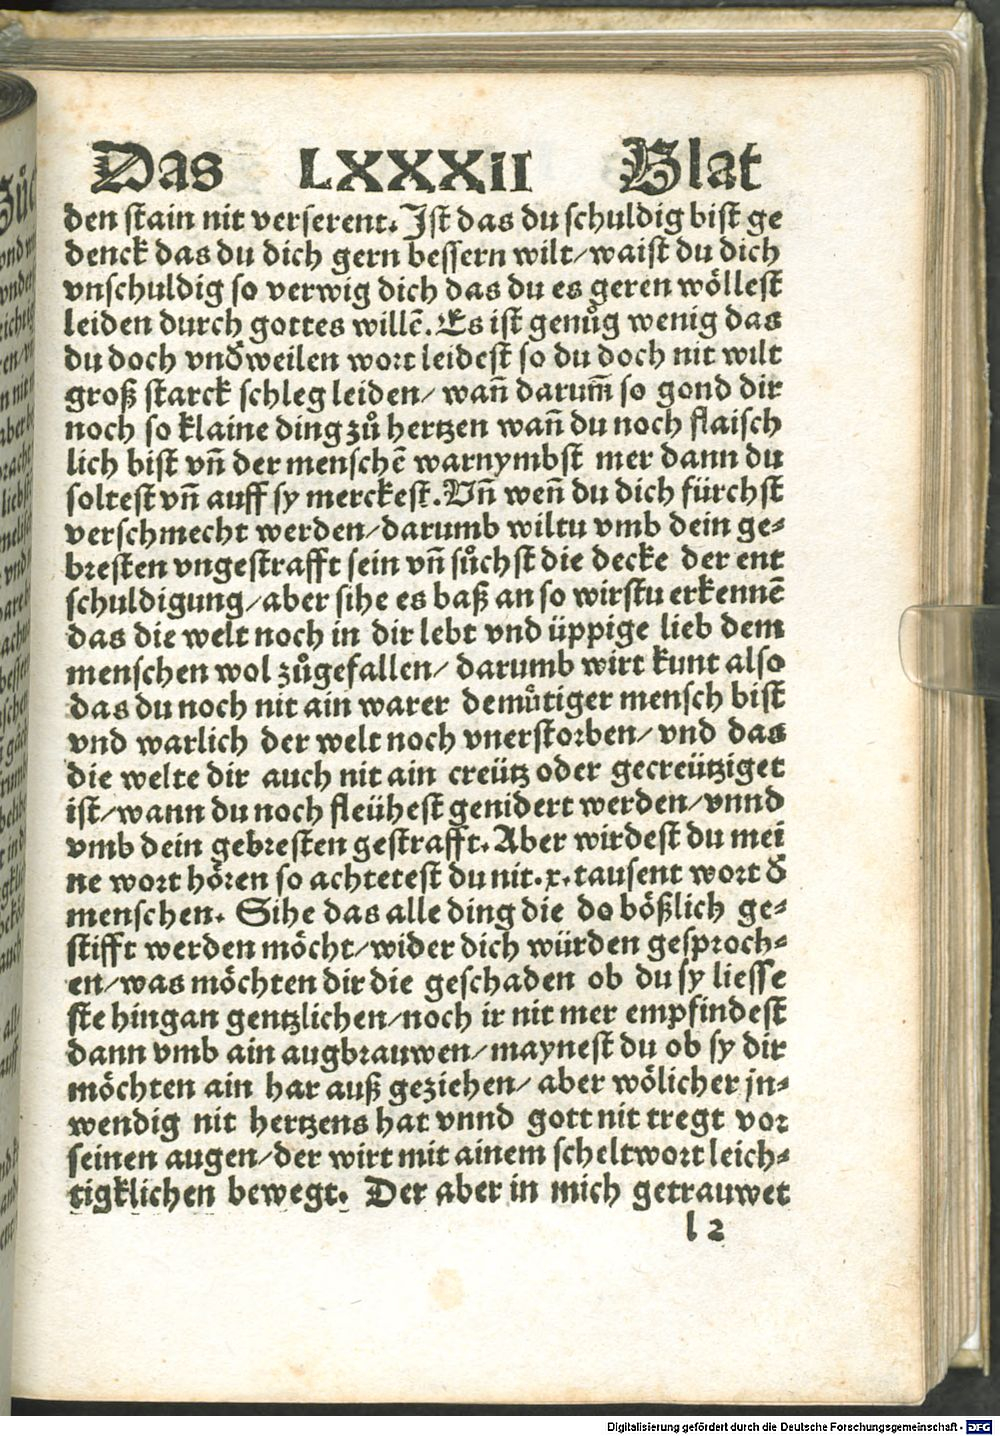 Das LXXXII Blat
den stain nit verserent. Ist das du schuldig bist ge
denck das du dich gern bessern wilt/waist du dich
vnschuldig so verwig dich das du es geren wöllest
leiden durch gottes willē. Es ist genůg wenig das
du doch vnd̄weilen wort leidest so du doch nit wilt
groß starck schleg leiden/ wañ darum̄ so gond dir
noch so klaine ding zů hertzen wañ du noch flaisch
lich bist vñ der menschē warnymbst mer dann du
soltest vñ auff sy merckest. Vñ weñ du dich fürchst
verschmecht werden/darumb wiltu vmb dein ge⸗
bresten vngestrafft sein vñ sůchst die decke der ent
schuldigung/aber sihe es baß an so wirstu erkennē
das die welt noch in dir lebt vnd üppige lieb dem
menschen wol zůgefallen/ darumb wirt kunt also
das du noch nit ain warer demütiger mensch bist
vnd warlich der welt noch vnerstorben/ vnd das
die welte dir auch nit ain creütz oder gecreütziget
ist/wann du noch fleühest genidert werden/vnnd
vmb dein gebresten gestrafft. Aber wirdest du mei
ne wort hören so achtetest du nit.x.tausent wort d̄
menschen. Sihe das alle ding die do bößlich ge⸗
stifft werden möcht/wider dich würden gesproch⸗
en/was möchten dir die geschaden ob du sy liesse
ste hingan gentzlichen/noch ir nit mer empfindest
dann vmb ain augbrauwen/maynest du ob sy dir
möchten ain har auß geziehen/ aber wölicher jn⸗
wendig nit hertzens hat vnnd gott nit tregt vor
seinen augen/der wirt mit ainem scheltwort leich⸗
tigklichen bewegt. Der aber in mich getrauwet
l 2
Digitalisierung gefördert durch die Deutsche Forschungsgemeinschaft - DFG